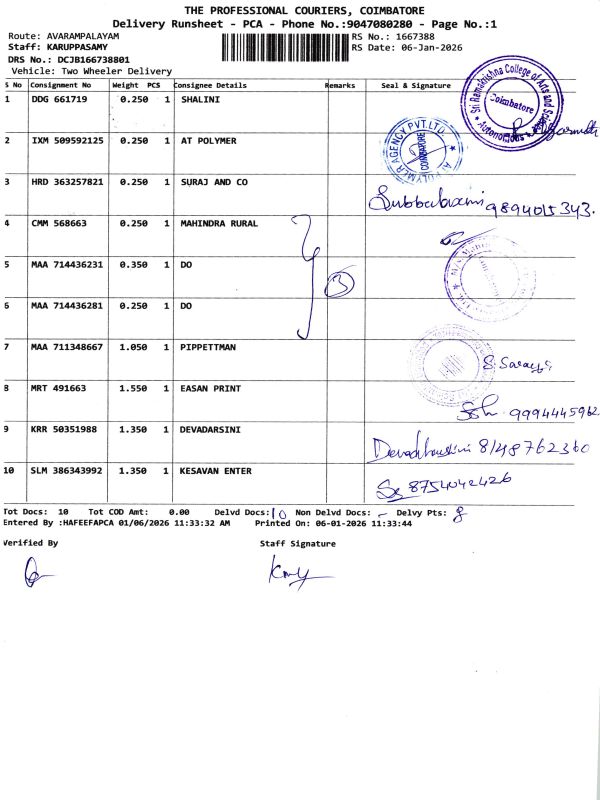 THE PROFESSIONAL COURIERS, COIMBATORE
Delivery Runsheet - PCA - Phone No.:9047080280 - Page No.:1
Route: AVARAMPALAYAM RS No.: 1667388
Staff: KARUPPASAMY RS Date: 06-Jan-2026
DRS No.: DCJB166738801
Vehicle: Two Wheeler Delivery
S No Consignment No Weight PCS Consignee Details Remarks Seal & Signature
1 DDG 661719 0.250 1 SHALINI
Sri Ramakrishna College of Arts and
Coimbatore
Autonomous
2 IXM 509592125 0.250 1 AT POLYMER
AGENCY PVT.LTD.
COIMBATORE
3 HRD 363257821 0.250 1 SURAJ AND CO
Subbalaxmi 9894015343.
4 CMM 568663 0.250 1 MAHINDRA RURAL
5 MAA 714436231 0.350 1 DO 3
6 MAA 714436281 0.250 1 DO
7 MAA 711348667 1.050 1 PIPPETTMAN
8 MRT 491663 1.550 1 EASAN PRINT
9994445962
9 KRR 50351988 1.350 1 DEVADARSINI
8148762360
10 SLM 386343992 1.350 1 KESAVAN ENTER
8754042426
Tot Docs: 10 Tot COD Amt: 0.00 Delvd Docs: 10 Non Delvd Docs: - Delvy Pts: 8
Entered By :HAFEEFAPCA 01/06/2026 11:33:32 AM Printed On: 06-01-2026 11:33:44
Verified By Staff Signature